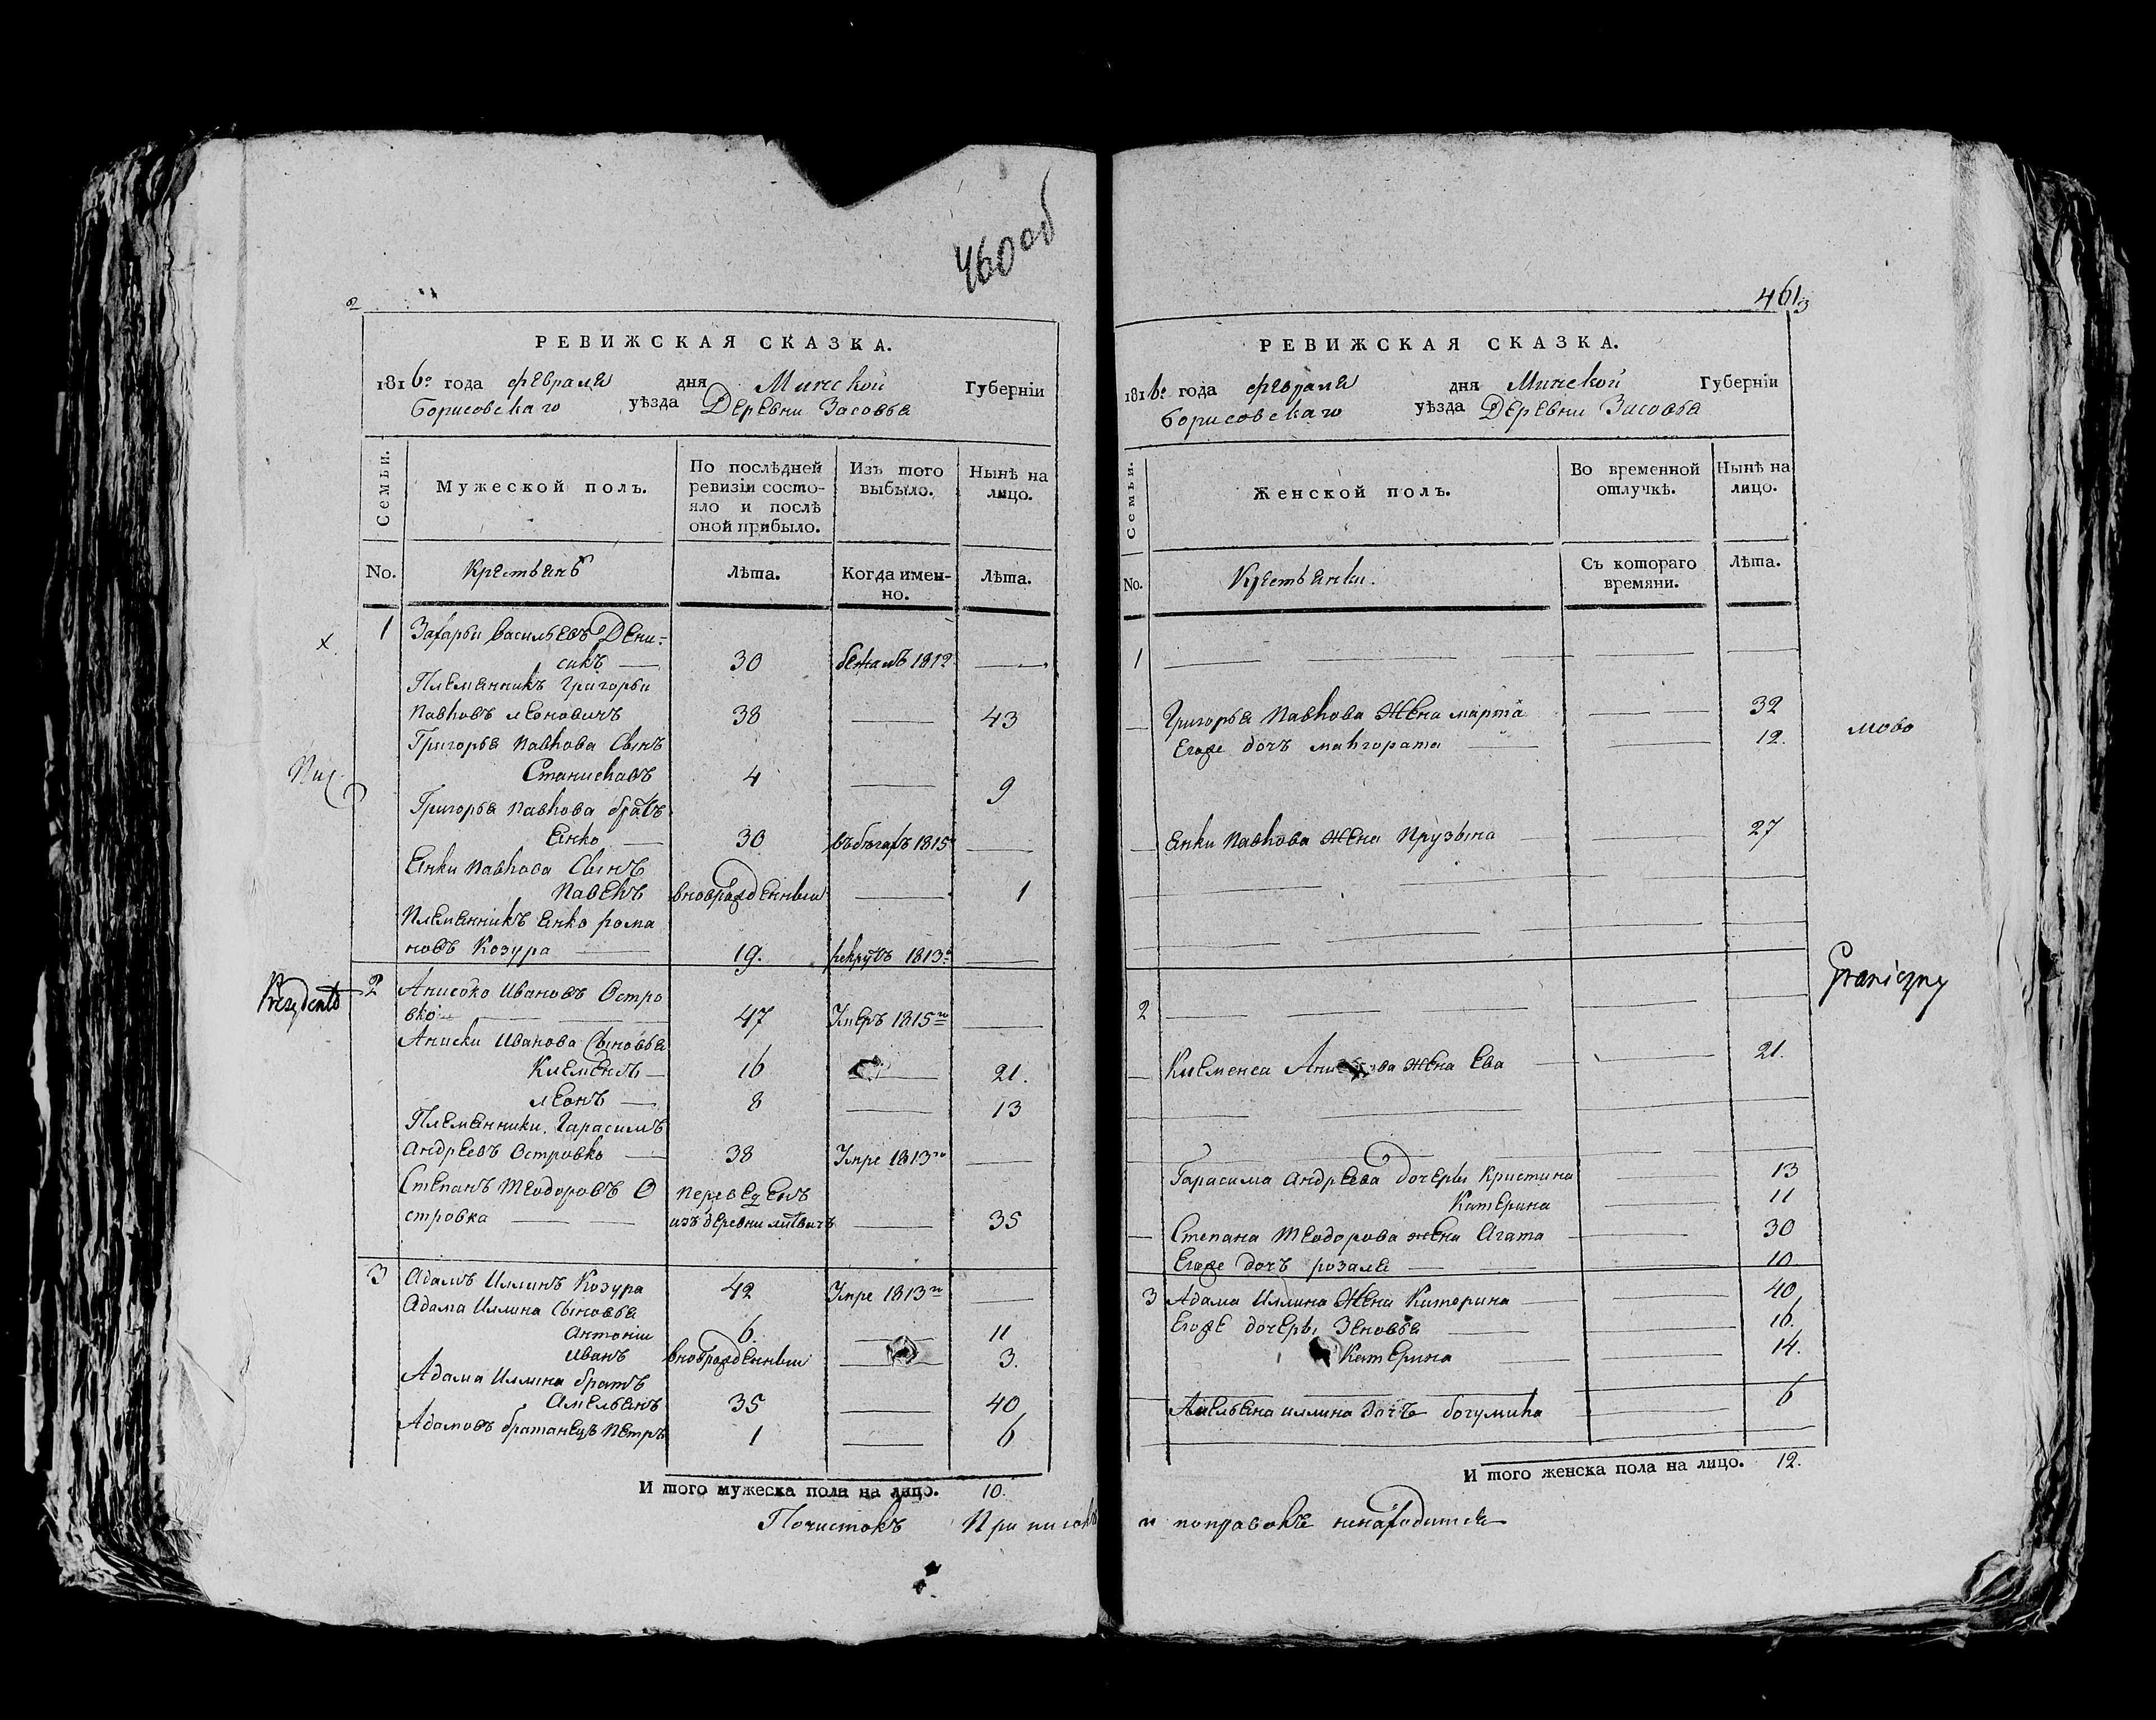 460 об
2
РЕВИЖСКАЯ СКАЗКА.
1816го года февраля дня Минской Губерніи
Борисовскаго уѣзда Деревни Засовья
Семьи.
Мужеской полъ.
По послѣдней ревизіи состо-
яло и послѣ оной прибыло.
Изъ того выбыло.
Нынѣ на лицо.
No.
Крестьянъ
Лѣта.
Когда имен-
но.
Лѣта.
х
1 Захарьи Васильевъ Дени=
сикъ — 30 бежалъ 1812 —
Племянникъ Григорьи
Павловъ Леоновичъ 38 — 43
Григорья Павлова Сынъ
Станиславъ 4 — 9
Григорья Павлова братъ
Янко — 30 въ бѣгахъ 1815 —
Янки Павлова Сынъ
Павелъ вноврожденный — 1
Племянникъ Янко рома
новъ Козура — 19. рекрутъ 1813го —
2 Анисько Ивановъ Остро
вко — 47 Умеръ 1815го —
Аниски Иванова Сыновья
Клеменъ — 16 — 21.
Леонъ — 8 — 13
Племянники, Гарасимъ
Андреевъ Островко — 38 Умре 1813го —
Степанъ Теодоровъ О переведенъ
стровка — изъ деревни — 35
3 Адамъ Иллинъ Козура 42 Умре 1813го —
Адама Иллина Сыновья
Антоній 6. — 11
Иванъ вноврожденный — 3.
Адама Иллина братъ
Амельянъ 35 — 40
Адамовъ братанецъ Петръ 1 — 6
И того мужеска пола на лицо. 10.
Почистокъ Приписокъ
461
3
РЕВИЖСКАЯ СКАЗКА.
1816го года февраля дня Минской Губерніи
Борисовскаго уѣзда Деревни Засовья
Семьи.
Женской полъ.
Во временной отлучкѣ.
Нынѣ на лицо.
No.
Крестьянки.
Съ котораго времяни.
Лѣта.
1 — — —
— Григорья Павлова Жена марта — 32
Егоже дочъ малгората — 12.
— Янки Павлова Жена Прузына — 27
Graniczny
2 — — —
— Клеменса жена Ева — 21.
Гарасима Андреева дочеры Кристина — 13
Катерина — 11
— Степана Теодорова жена Агата — 30
Егоже дочъ розаля — 10
3 Адама Иллина Жена Каторина — 40
Егоже дочеры Зеновья — 16.
Катерина — 14.
Амельяна иллина дочъ богумила — 6
И того женска пола на лицо. 12.
и поправокъ ненаходится